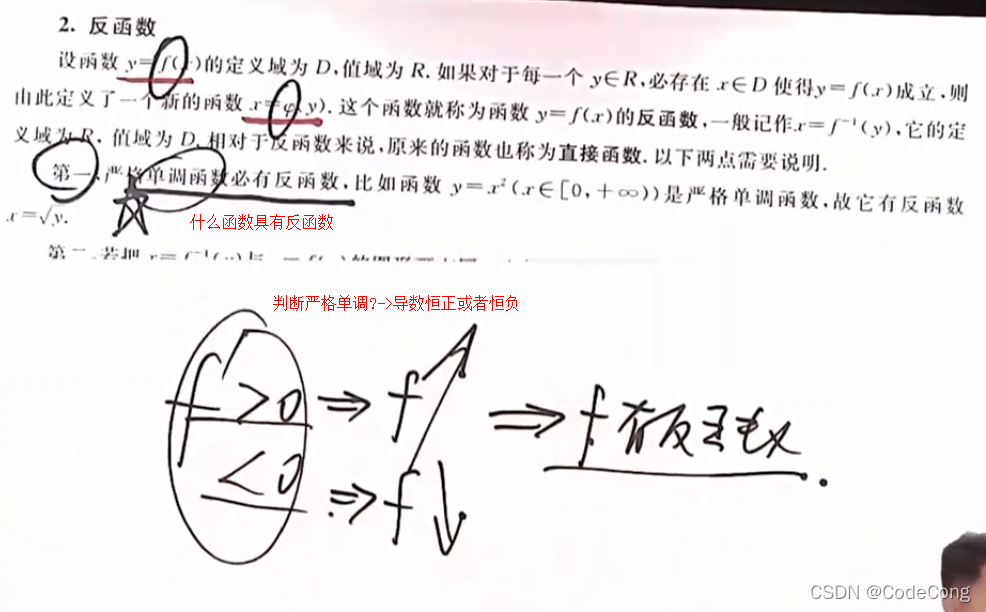 2. 反函数
设函数 y=f(x)的定义域为 D,值域为 R. 如果对于每一个 y∈R,必存在 x∈D 使得y=f(x)成立,则
由此定义了一个新的函数 x=φ(y). 这个函数就称为函数 y=f(x)的反函数,一般记作x=f⁻¹(y),它的定
义域为 R, 值域为 D. 相对于反函数来说,原来的函数也称为直接函数. 以下两点需要说明.
第一,严格单调函数必有反函数,比如函数 y=x²(x∈[0,+∞))是严格单调函数,故它有反函数
x=√y.
什么函数具有反函数
第二,若把
判断严格单调?->导数恒正或者恒负
f' >0 ⇒ f ↗ ⇒ f 有反函数.
<0 ⇒ f ↓
CSDN @CodeCong